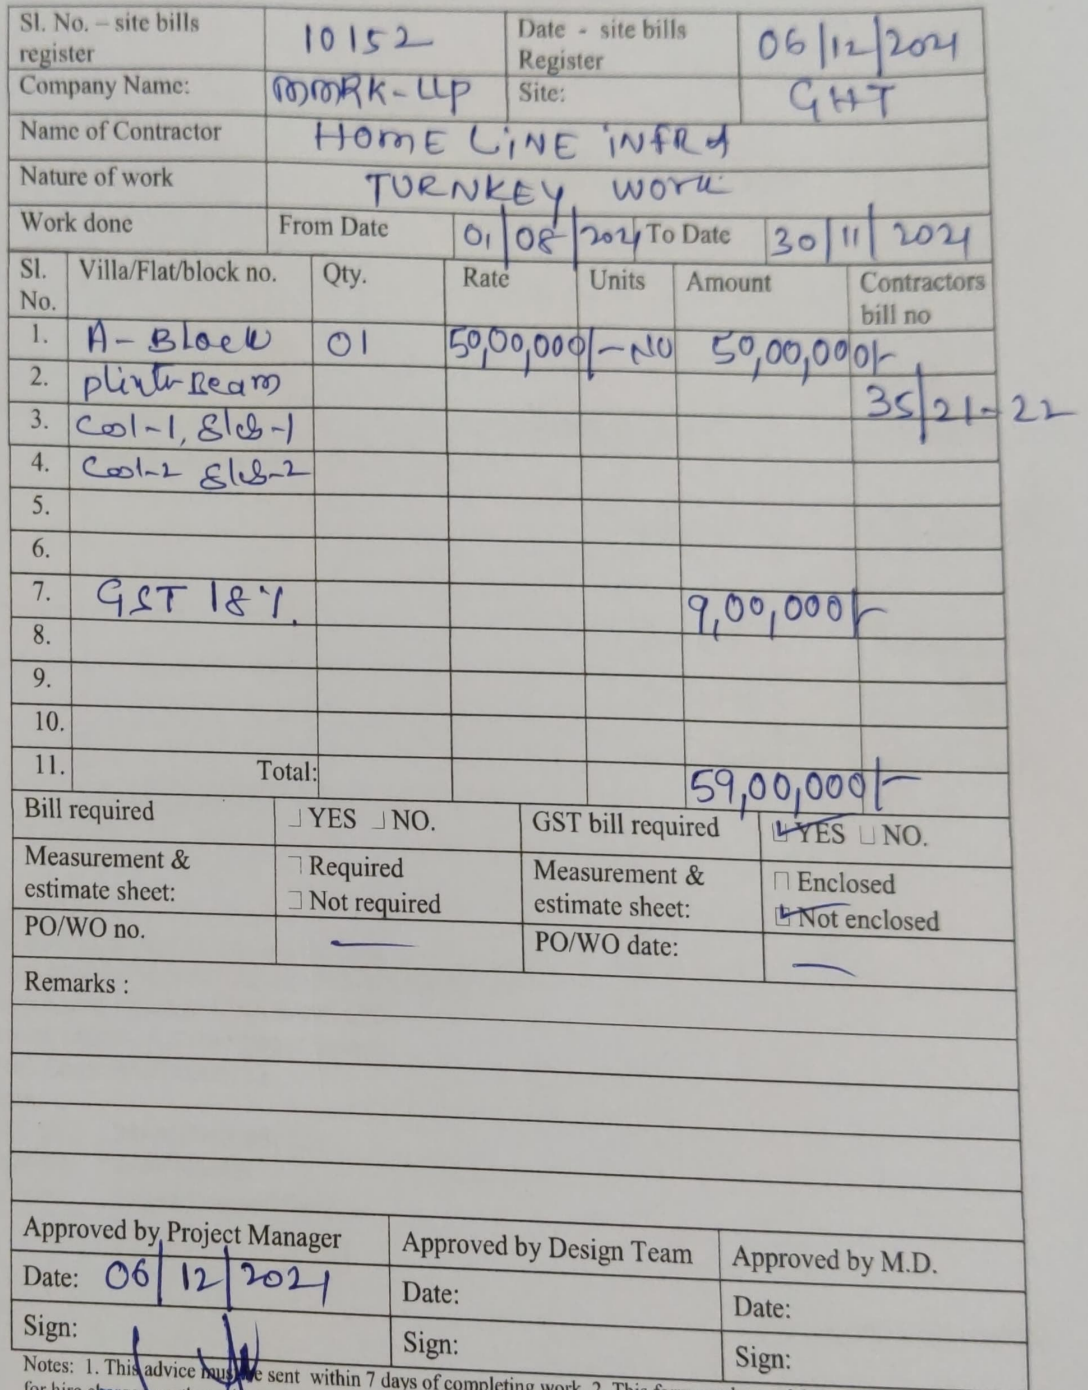 Sl. No. – site bills register 10152 Date - site bills Register 06/12/2021
Company Name: MMRK-UP Site: GHT
Name of Contractor HOME LINE INFRA
Nature of work TURNKEY WORK
Work done From Date 01/08/2021 To Date 30/11/2021
Sl. No. Villa/Flat/block no. Qty. Rate Units Amount Contractors bill no
1. A-Block 01 50,00,000/- NO 50,00,000/-
2. plinth Beam 35/21-22
3. Col-1, Slab-1
4. Col-2 Slab-2
5.
6.
7. GST 18%. 9,00,000/-
8.
9.
10.
11. Total: 59,00,000/-
Bill required YES NO. GST bill required YES NO.
Measurement & estimate sheet: Required Not required Measurement & estimate sheet: Enclosed Not enclosed
PO/WO no. — PO/WO date: —
Remarks :
Approved by Project Manager Approved by Design Team Approved by M.D.
Date: 06/12/2021 Date: Date:
Sign: Sign: Sign:
Notes: 1. This advice must be sent within 7 days of completing work. 2. This